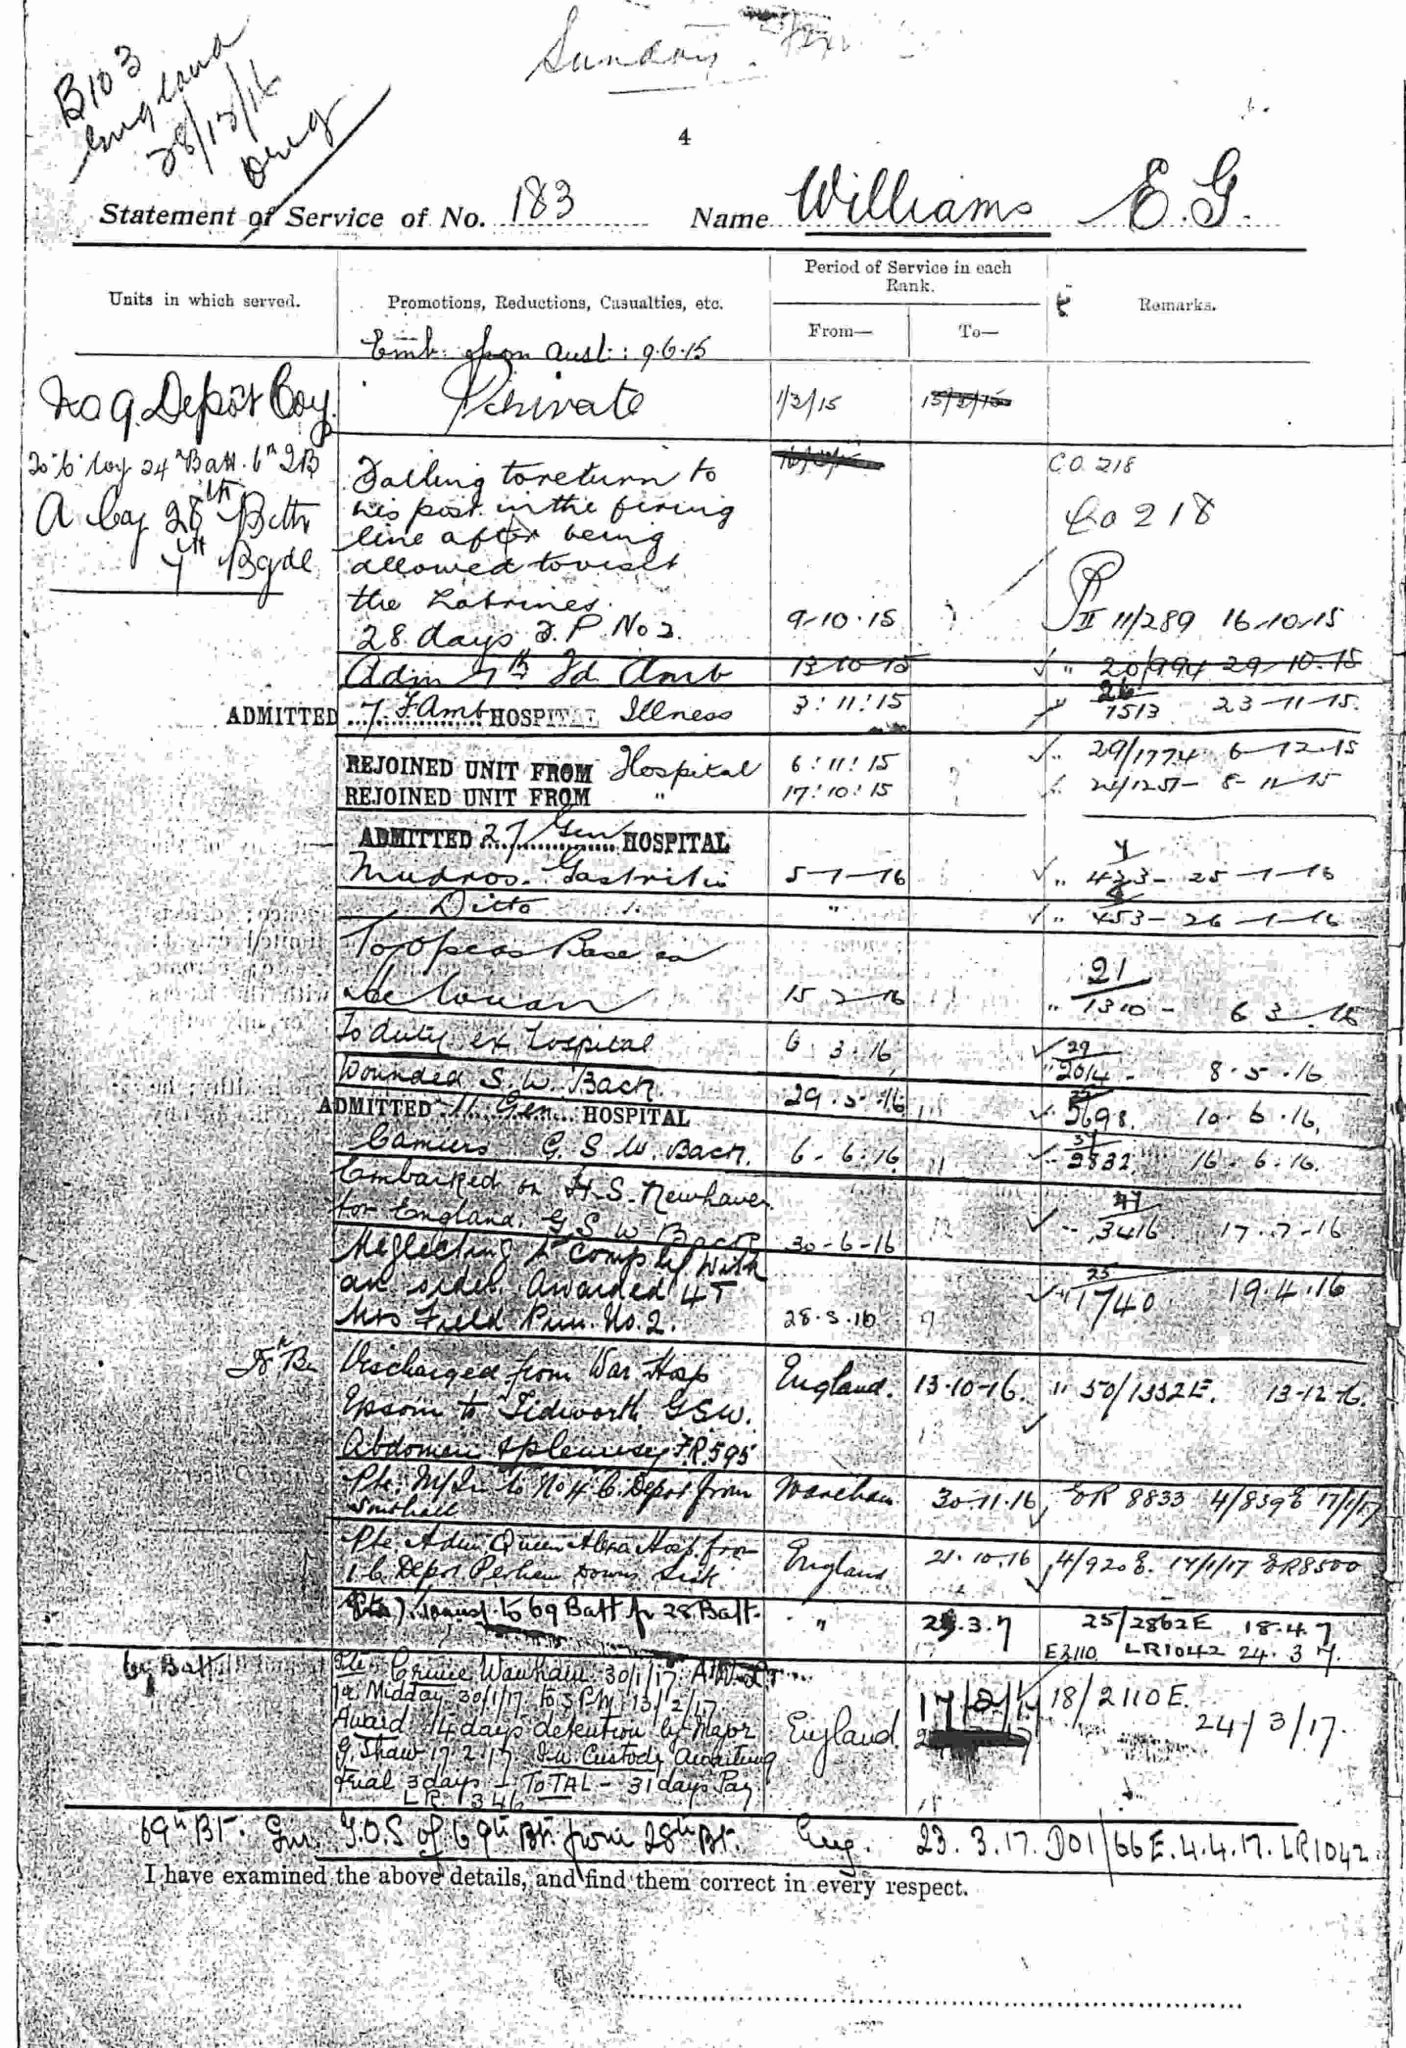 Sunday
B103
England
28/12/16
Orig
4
Statement of Service of No. 183 Name Williams E.G.
Units in which served. Promotions, Reductions, Casualties, etc. Period of Service in each Rank. Remarks.
From— To—
Emb: from Aust: 9.6.15
No 9 Depôt Coy. Private 1/3/15 15/3/15
24th Batt. 6th I B
A Coy 28th Battn
7th Bgde
Failing to return to CO. 218
his post in the firing Co 218
line after being
allowed to visit
the Latrines.
28 days F.P. No 2. 9-10-15 II 11/289 16-10-15
Adm 7th Fd. Amb 13-10-15 " 20/994 29-10-15
ADMITTED 7 F Amb HOSPITAL Illness 3:11:15 26/1513 23-11-15
REJOINED UNIT FROM Hospital 6:11:15 " 29/1774 6-12-15
REJOINED UNIT FROM " 17:10:15 8-11-15
ADMITTED 27 Gen HOSPITAL
Mudros. Gastritis 5-1-16 " 4/433- 25-1-16
Ditto " " 453- 26-1-16
To Opeas Base ex
15 2 16 " 21/1310 - 6 3 16
To duty ex Hospital 6.3.16 " 29/2014 - 8.5.16
Wounded S.W. Back. 29.5.16 2698. 10.6.16.
ADMITTED 11 Gen HOSPITAL
Camiers G.S.W. Back. 6-6-16 2832 16.6.16.
Embarked on H.S. Newhaven
for England. G S W Back 30-6-16 " 47/3416 17.7-16
Neglecting to comply with
an order. Awarded 45
hrs Field Pun. No. 2. 28.3.16 " 25/1740 19.4.16
Discharged from War Hosp England. 13-10-16. " 50/1332E. 13-12-16.
Epsom to Tidworth GSW.
Abdomen & pleurisy F.R.595
Pte. M/In to No 4 C. Depot from Wareham 30-11-16 ER 8833 4/839E 17/1/17
Pte Adm Queen Alexa Hosp. from England 21.10.16 4/920E. 17/1/17 ER8500
1. C. Depot Perham Downs Sick
to 69 Batt fr 28 Batt. " 23.3.7 25/2862E 18.4.7
E3110 LR1042 24.3.17.
69 Batt Pte Crime Wareham 30/1/17 A.W.L. fr
Midday 30/1/17 to 5 PM 13/2/17
Award 14 days detention by Major England 17/2/17 18/2110E. 24/3/17.
G. Shaw 17.2.17 In Custody awaiting
trial 3 days - TOTAL - 31 days Pay
LR. 346
69th Bt. T.O.S of 69th Bt. from 28th Bt. Eng. 23.3.17. DO1/66E. 4.4.17. LR1042.
I have examined the above details, and find them correct in every respect.